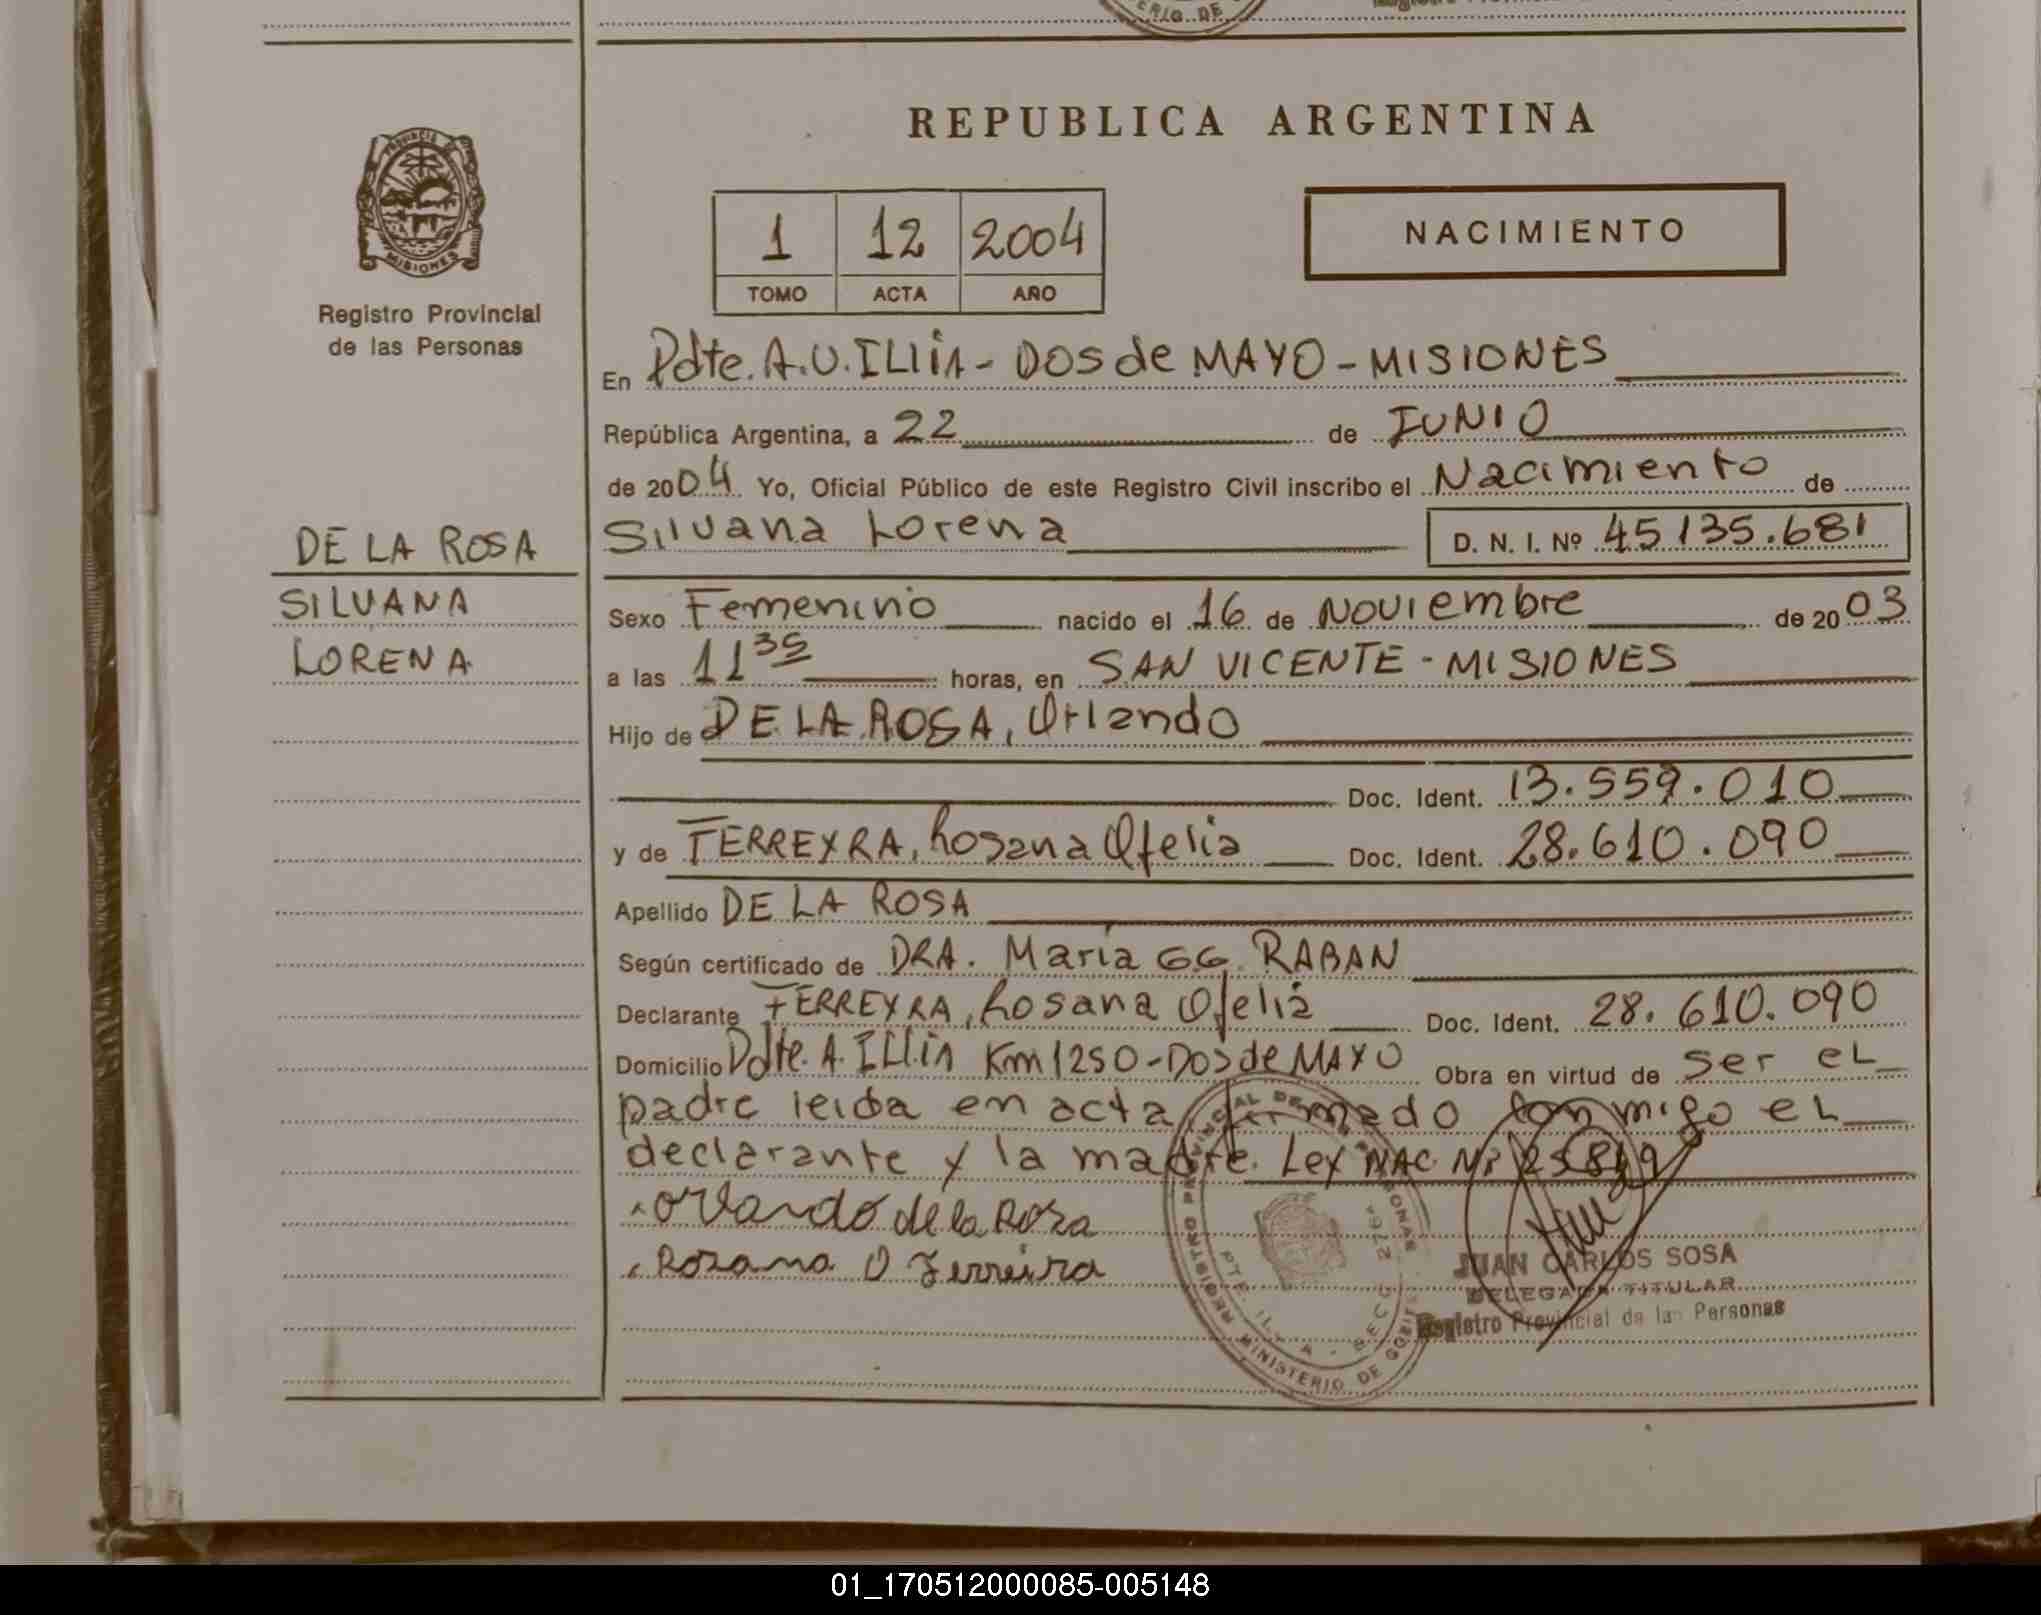 REPUBLICA ARGENTINA
PROVINCIA DE MISIONES
Registro Provincial
de las Personas
1 12 2004
TOMO ACTA AÑO
NACIMIENTO
En Pdte. A.U. ILLIA - DOS de MAYO - MISIONES
República Argentina, a 22 de JUNIO
de 2004 Yo, Oficial Público de este Registro Civil inscribo el Nacimiento de
Silvana Lorena D. N. I. Nº 45135.681
DE LA ROSA
SILVANA
LORENA
Sexo Femenino nacido el 16 de Noviembre de 2003
a las 11 30 horas, en SAN VICENTE - MISIONES
Hijo de DE LA ROSA, Orlando
Doc. Ident. 13.559.010
y de FERREYRA, Rosana Ofelia Doc. Ident. 28.610.090
Apellido DE LA ROSA
Según certificado de DRA. María GG. RABAN
Declarante FERREYRA, Rosana Ofelia Doc. Ident. 28.610.090
Domicilio Pdte. A. ILLIA Km 1250 - Dos de MAYO Obra en virtud de ser el
padre leida en acta firmado conmigo el
declarante y la madre. Ley NAC. Nº 25819
orlando de la Rosa
Rozana O Ferreira
REGISTRO PROVINCIAL DE LAS PERSONAS
MINISTERIO DE
JUAN CARLOS SOSA
DELEGADO TITULAR
Registro Provincial de las Personas
01_170512000085-005148